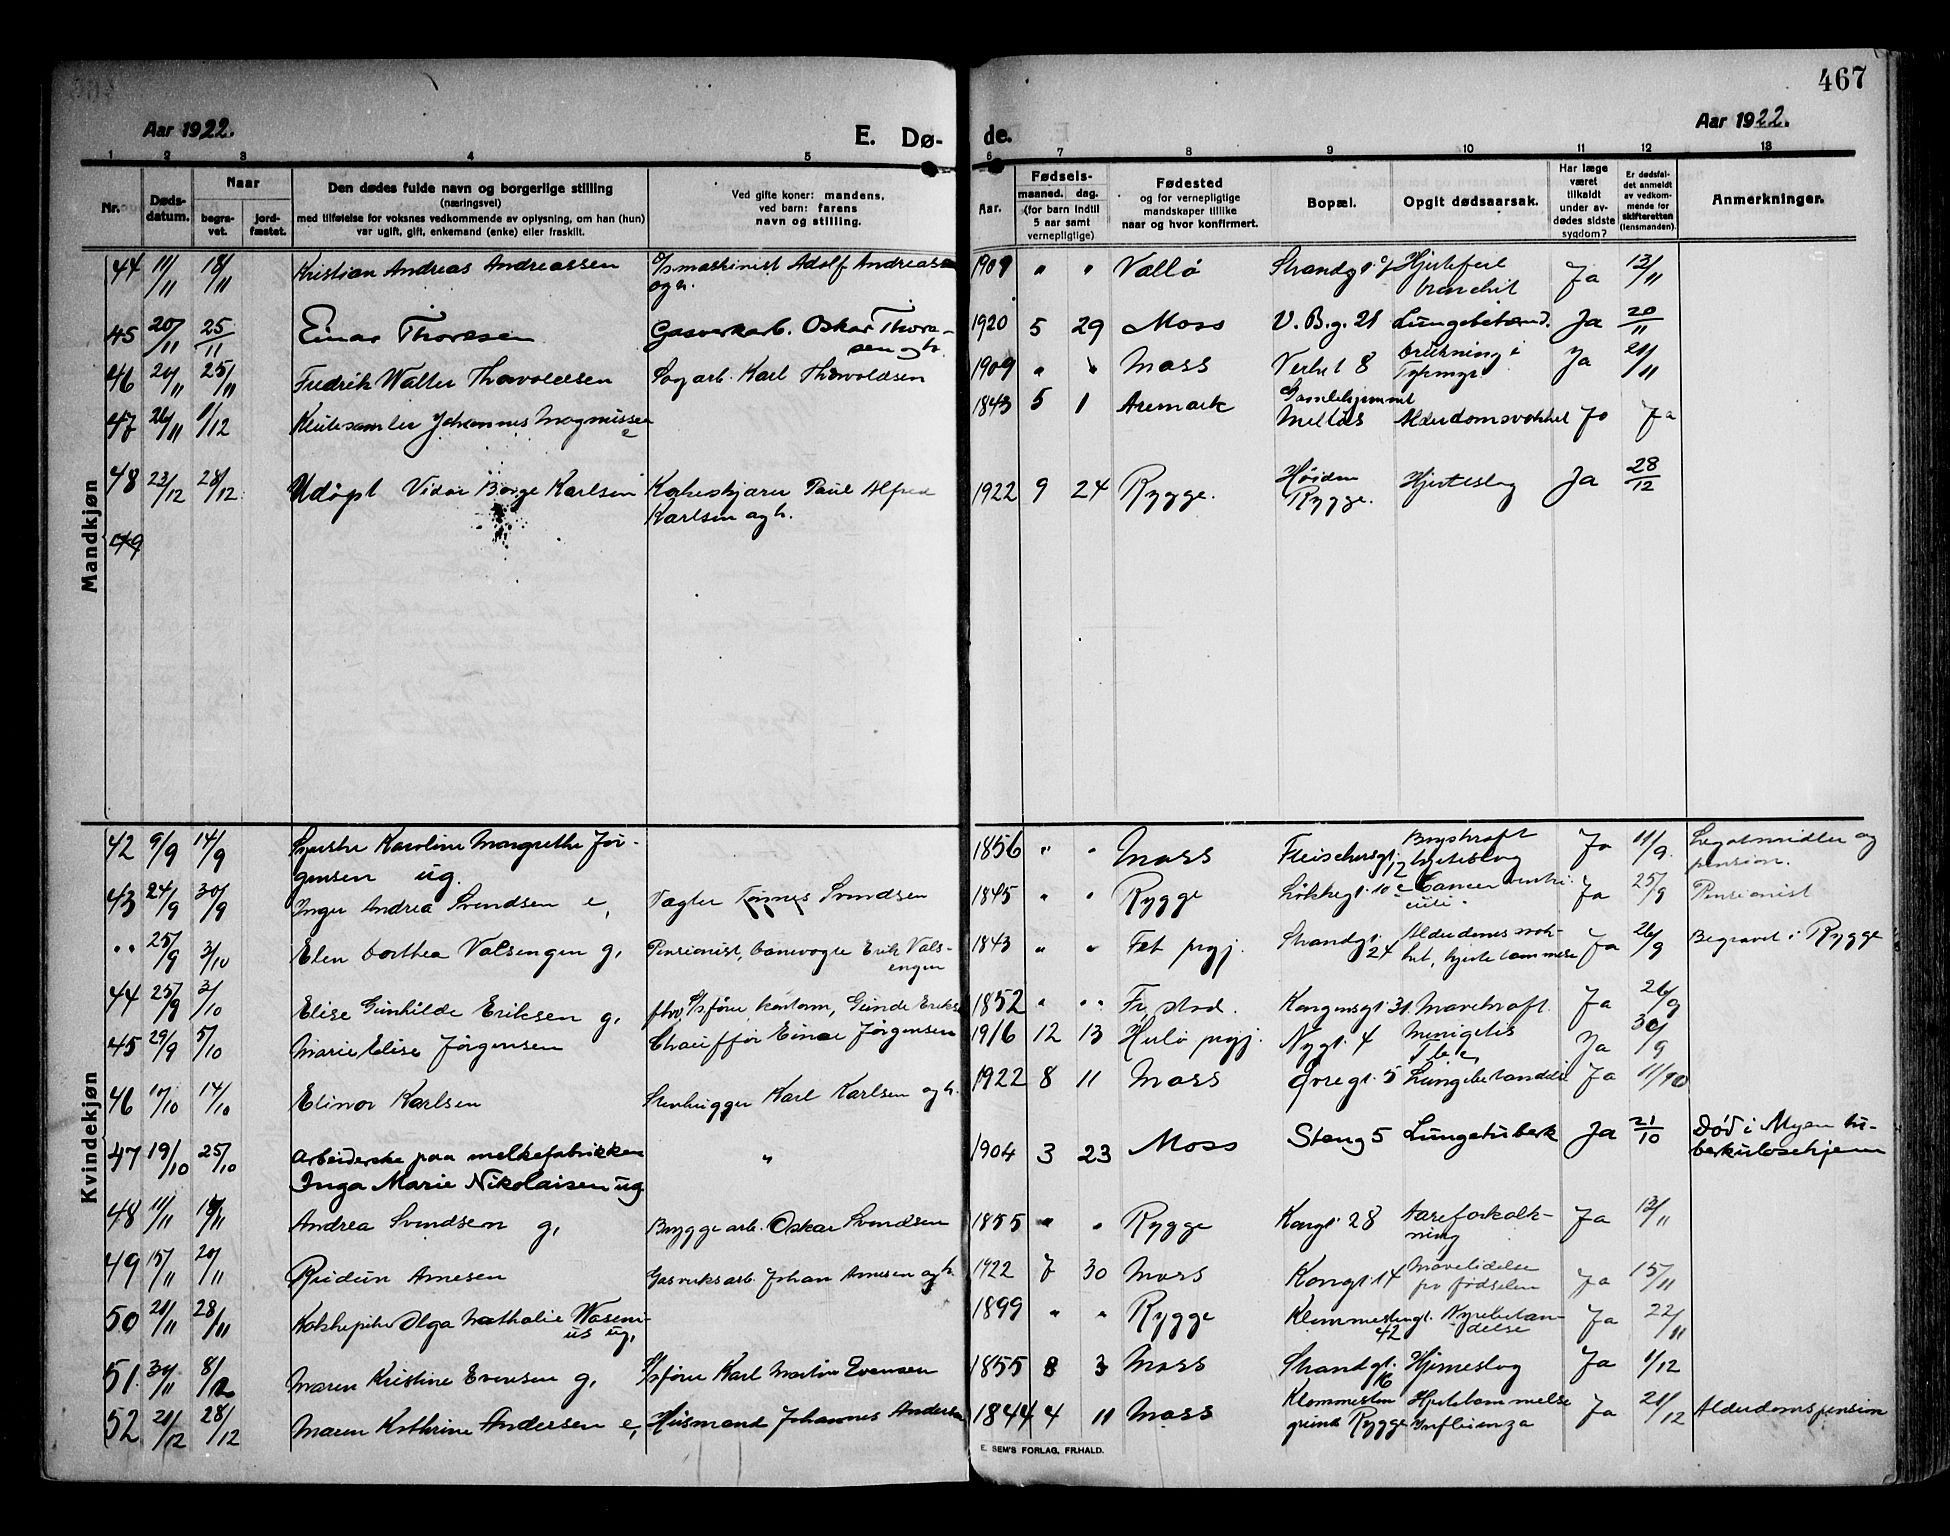 467
Aar 1922.
E. Dø-
de.
Aar 1922.
1 2 3 4 5 6 7 8 9 10 11 12 13
Nr.
Døds-
datum.
Naar
begra-
vet.
jord-
fæstet.
Den dødes fulde navn og borgerlige stilling
(næringsvei)
med tilføielse for voksnes vedkommende av oplysning, om han (hun)
var ugift, gift, enkemand (enke) eller fraskilt.
Ved gifte koner: mandens,
ved barn: farens
navn og stilling.
Aar.
Fødsels-
maaned. dag.
(for barn indtil
5 aar samt
vernepligtige)
Fødested
og for vernepligtige
mandskaper tillike
naar og hvor konfirmert.
Bopæl.
Opgit dødsaarsak.
Har læge
været
tilkaldt
under av-
dødes sidste
sygdom?
Er dødsfal-
det anmeldt
av vedkom-
mende for
skifteretten
(lensmanden).
Anmerkninger.
Mandkjøn
44 11/11 18/11 Kristian Andreas Andreassen maskinist Adolf Andreassen 1909 " " Vallø Strandgt. Hjertefeil Ja 13/11
ogh.
45 20/11 25/11 Einar Thoresen Gasverkarb. Oskar Thore- 1920 5 29 Moss V.B.g. 21 Lungebetænd. Ja 20/11
sen ogh.
46 20/11 25/11 Fredrik Walter Thorvaldsen Sagarb. Karl Thorvaldsen 1909 " " Moss Verket 8 Drukning i Ja 21/11
47 26/11 1/12 Klutesamler Johannes Magnussen 1843 5 1 Aremark Gamlehjemmet
Melløs Alderdomssvakhet Ja Ja
e
48 23/12 28/12 Udøpt Vidar Børge Karlsen Kakeskjærer Paul Alfred 1922 9 24 Rygge. Høiden Hjerteslag Ja 28/12
Karlsen ogh. Rygge.
49
Kvindekjøn
42 9/9 14/9 Syerske Karoline Margrethe Jør- 1856 " " Moss Fleischersgt. 12 Brystkraft Ja 11/9. Legatmidler og
gensen ug. hjerteslag pension.
43 24/9 30/9 Inger Andrea Svendsen e, Vagter Tønnes Svendsen 1845 " " Rygge Løkkegt. 10 Cancer ventri- Ja 25/9 Pensionist
culi.
" 25/9 3/10 Elen Dorthea Valsengen g, Pensionist, banevogte Erik Vals- 1843 " " Fet prgj. Strandgt. 24 Alderdomssvak- Ja 26/9 Begravet i Rygge
engen het, hjertelammelse
44 25/9 3/10 Elise Gunhilde Eriksen g, fhv. S/sfører Gunde Eriksen 1852 " " Fr.stad. Kongensgt. 31 Mavekraft. Ja 26/9
45 29/9 5/10 Marie Elise Jørgensen Chauffør Einar Jørgensen 1916 12 13 Hurlø prgj. Nygt. 4 Menigitis Ja 30/9
46 10/10 14/10 Elinor Karlsen Stenhugger Karl Karlsen ogh. 1922 8 11 Moss Øvregt. 5 Lungebetændelse Ja 11/10
47 19/10 25/10 Arbeiderske paa melkefabrikken " 1904 3 23 Moss Steng 5 Lungetuberk Ja 21/10 Død i Myen tu-
Inga Marie Nikolaisen ug. berkulosehjem
48 11/11 Andrea Svendsen g, Bryggearb. Oskar Svendsen 1855 " " Rygge Kongt. 28 Aareforkalk- Ja 13/11
ning
49 15/11 20/11 Reidun Arnesen Gasverksarb. Johan Arnesen ogh. 1922 7 30 Moss Kongt. 14 Mavelidelse Ja 15/11
fra fødselen
50 21/11 28/11 Kokkepike Olga Nathalie Waseni- 1899 " " Rygge Klommestengt. 42 Nyrebetæn- Ja 22/11
us ug, delse
51. 30/11 8/12 Maren Kristine Evensen g, S/sfører Karl Martin Evensen 1855 8 3 Moss Strandgt. 16 Hjerneslag Ja 1/12
52 21/12 28/12 Maren Kathrine Andersen e, Husmand Johannes Andersen 1844 4 11 Moss Klommesten Hjertelammelse Ja 21/12 Alderdomspension
grund Rygge Influenza
E. SEM'S FORLAG, FR.HALD.